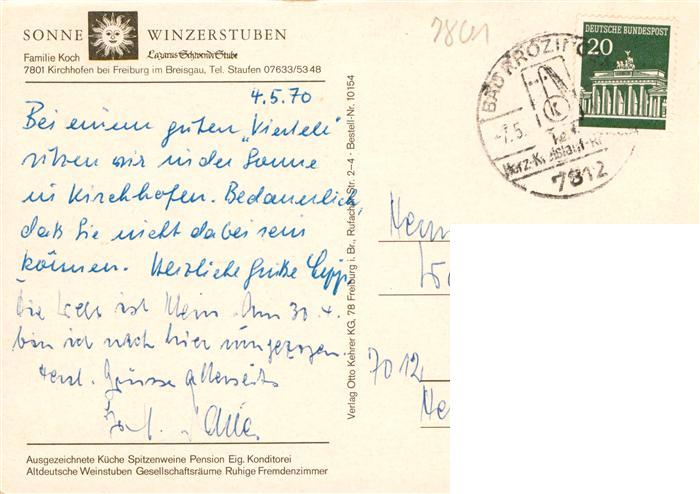 SONNE WINZERSTUBEN
Familie Koch Lazarus Schwendi Stube
7801 Kirchhofen bei Freiburg im Breisgau, Tel. Staufen 07633/5348
4.5.70
Bei einem guten „Vierteli"
sitzen wir in der Sonne
in Kirchhofen. Bedauerlich,
daß Sie nicht dabei sein
können. Herzliche Grüße
Die Welt ist klein. Am 30.4.
bin ich nach hier umgezogen.
Herzl. Grüsse allerseits
Ausgezeichnete Küche Spitzenweine Pension Eig. Konditorei
Altdeutsche Weinstuben Gesellschaftsräume Ruhige Fremdenzimmer
Verlag Otto Kehrer KG, 78 Freiburg i. Br., Rufacher Str. 2-4 · Bestell-Nr. 10154
DEUTSCHE BUNDESPOST
20
BAD KROZINGEN
-7.5.
Herz-Kreislauf-
7812
7012